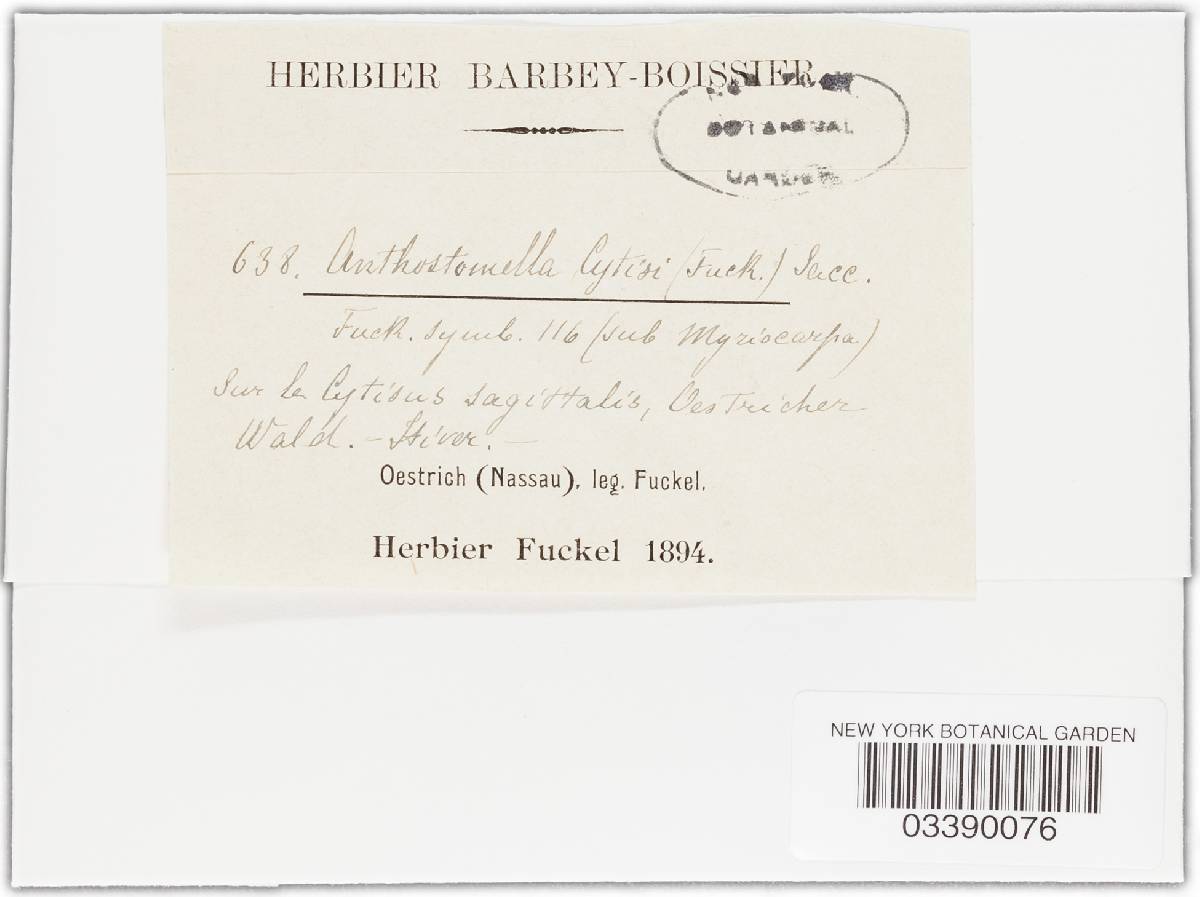 HERBIER BARBEY-BOISSIER
NEW YORK
BOTANICAL
GARDEN
638. Anthostomella Cytisi (Fuck.) Sacc.
Fuck. symb. 116 (sub Myriocarpa)
Sur le Cytisus sagittalis, Oestricher
Wald. – Hiver. –
Oestrich (Nassau), leg. Fuckel.
Herbier Fuckel 1894.
NEW YORK BOTANICAL GARDEN
03390076